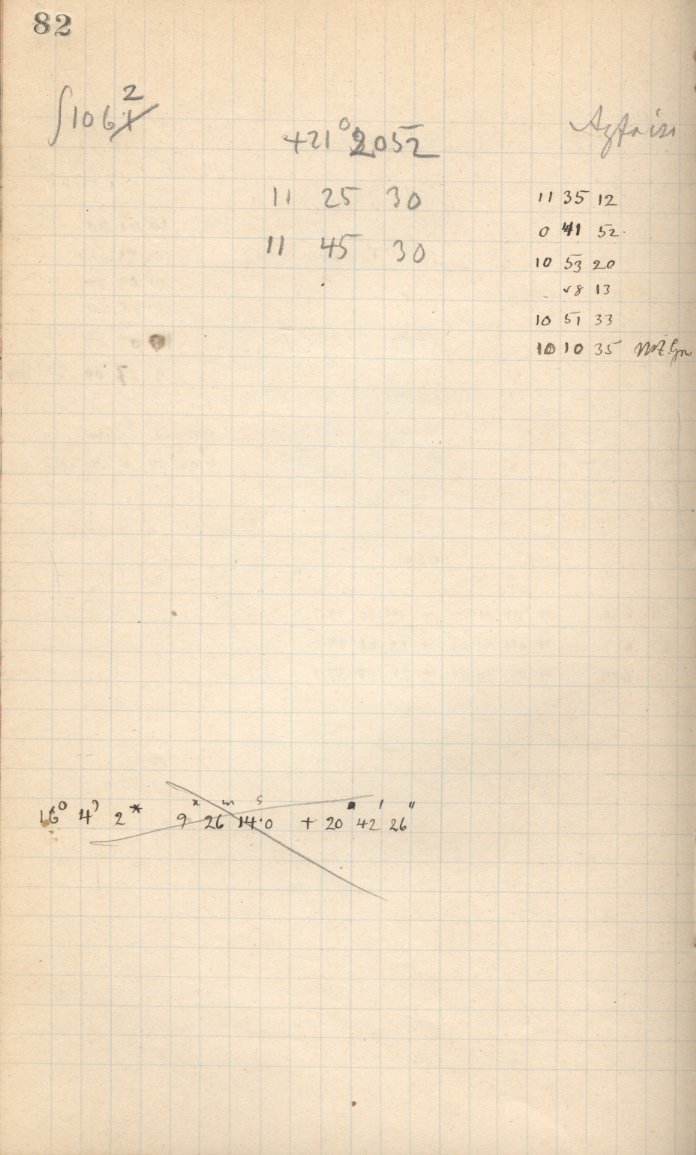 82
∫106 1 2
+21° 2052
11 25 30
11 45 30
11 35 12
0 41 52
10 53 20
8 13
10 51 33
10 10 35
16° 4' 2* 9 26ᵐ 14ˢ.0 + 20° 42' 26"